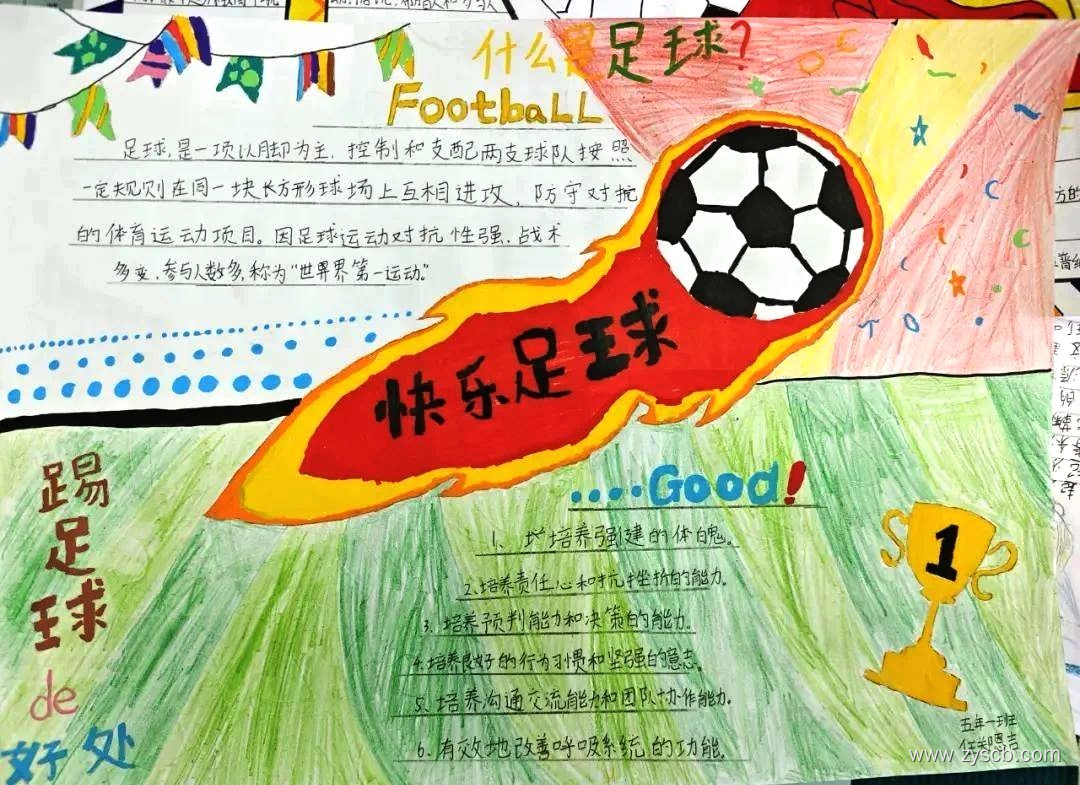 什么是足球？
FootbaLL
足球，是一项以脚为主，控制和支配两支球队按照
一定规则在同一块长方形球场上互相进攻，防守对抗
的体育运动项目。因足球运动对抗性强、战术
多变、参与人数多，称为“世界界第一运动。”
快乐足球
踢足球de好处
....Good!
1、培养强建的体魄。
2.培养责任心和抗挫折的能力。
3.培养预判能力和决策的能力。
4.培养良好的行为习惯和坚强的意志。
5.培养沟通交流能力和团队协作能力。
6.有效地改善呼吸系统的功能。
1
五年一班
www.zyscb.com